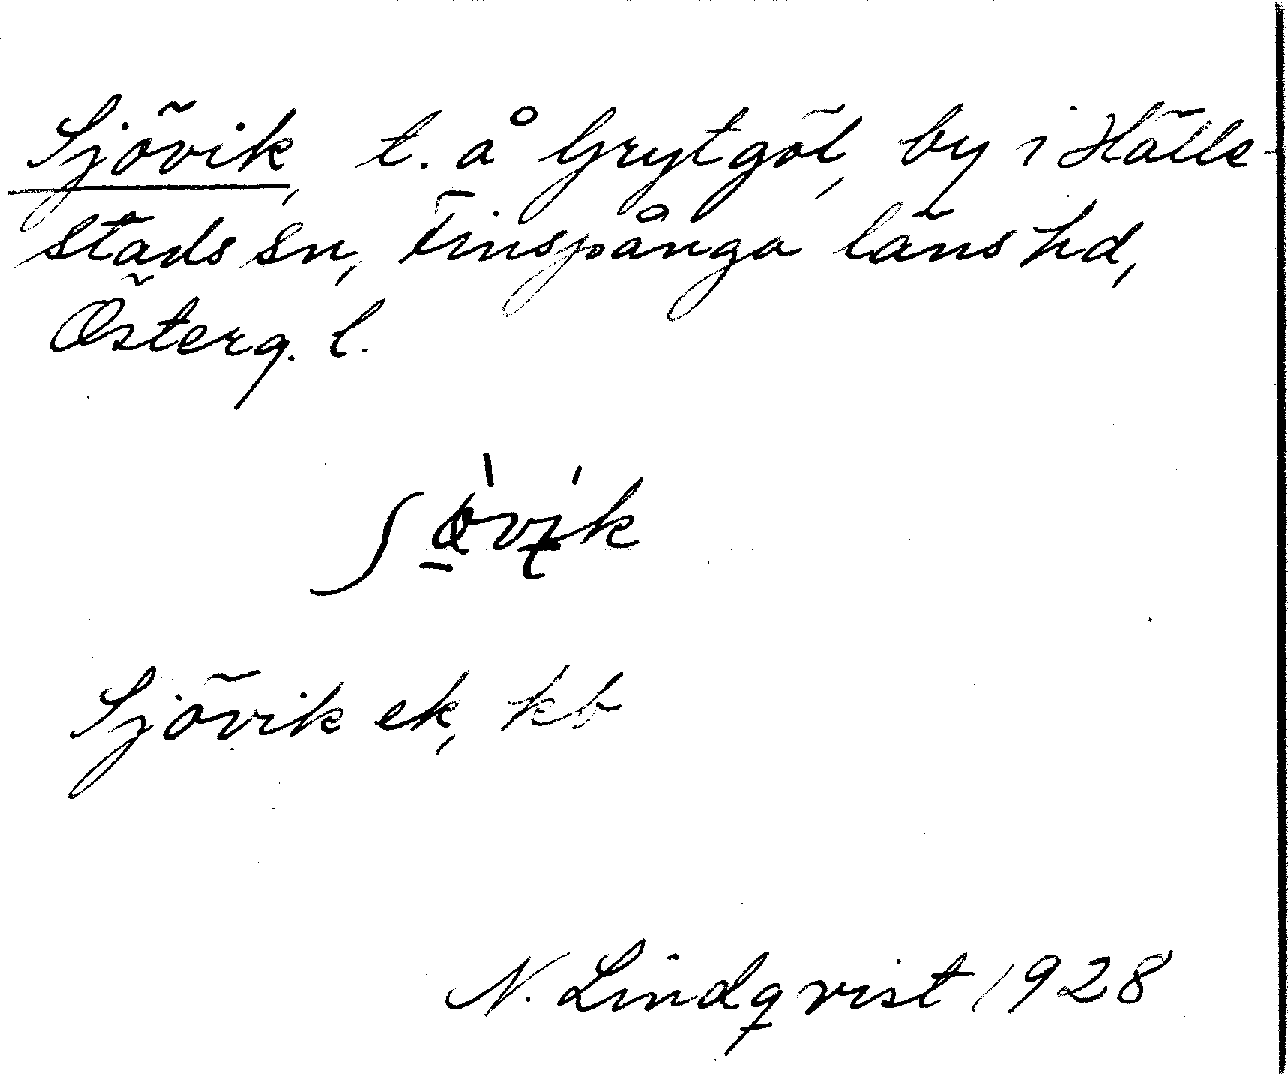 Sjövik, t. å Grytgöl, by i Hälle-
stads sn, Finspånga läns hd,
Österg. l.
Sjövik ek, kb
N. Lindqvist 1928